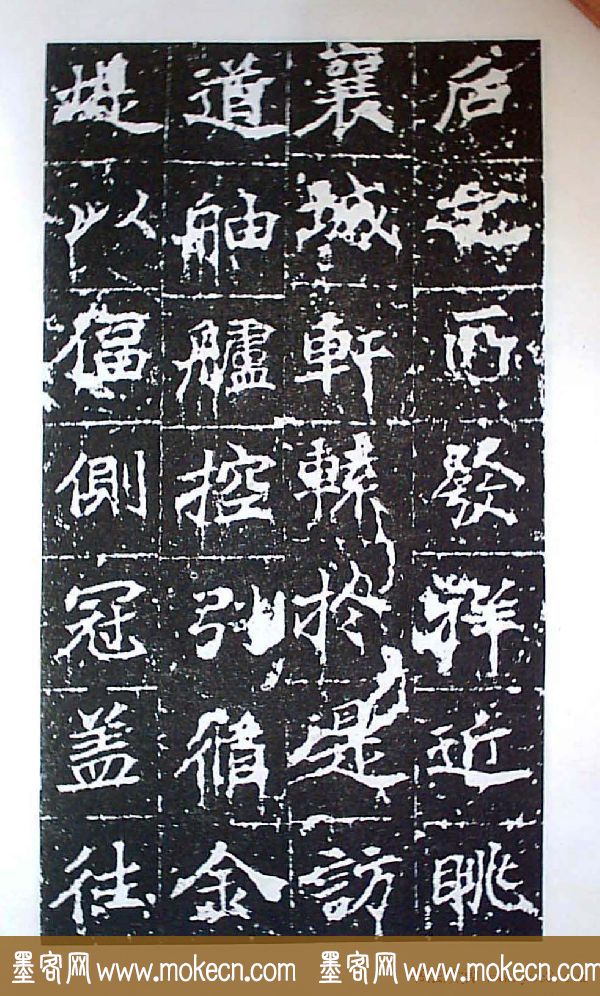 后之所發祥近眺
襄城軒轅於是訪
道舳艫控引循金
堤以偪側冠盖往
墨客网 www.mokecn.com 墨客网 www.mokecn.com